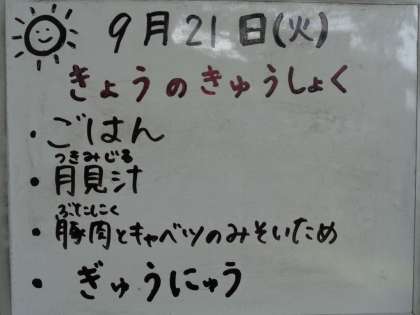 9月21日(火)
きょうのきゅうしょく
・ごはん
つきみじる
・月見汁
ぶたにく
・豚肉とキャベツのみそいため
・ぎゅうにゅう